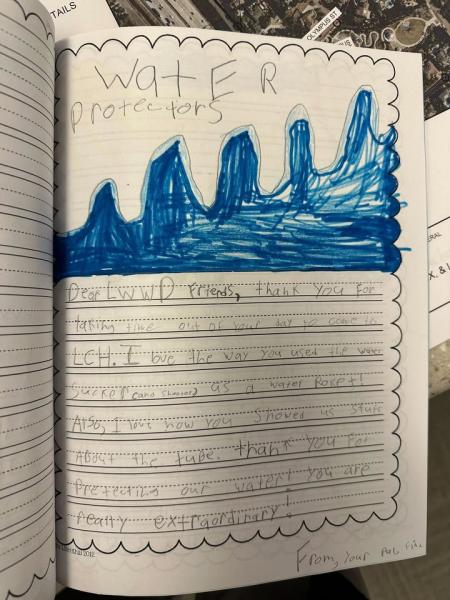 TAILS
OLYMPUS ST
WatER
Protectors
Dear LWWD Friends, thank you For
taking time out of your day to come to
LCH. I love the way you used the water
Sucker (and shooter) as a water Roket!
Also, I love how you showed us stuff
About the tube. thank you For
Protecting our water! You are
really extraordinary!
From, your pal
ERAL
X. &
2012